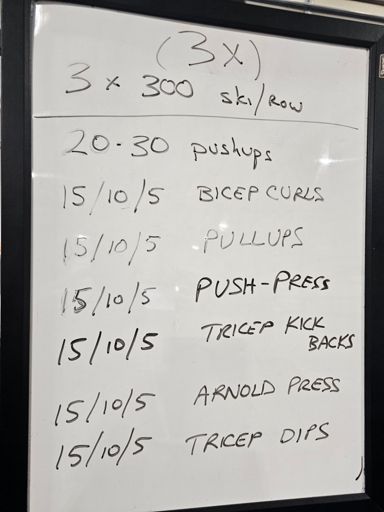 (3X)
3 x 300 ski/ROW
20-30 pushups
15/10/5 BICEP CURLS
15/10/5 PULLUPS
15/10/5 PUSH-PRESS
15/10/5 TRICEP KICK
BACKS
15/10/5 ARNOLD PRESS
15/10/5 TRICEP DIPS